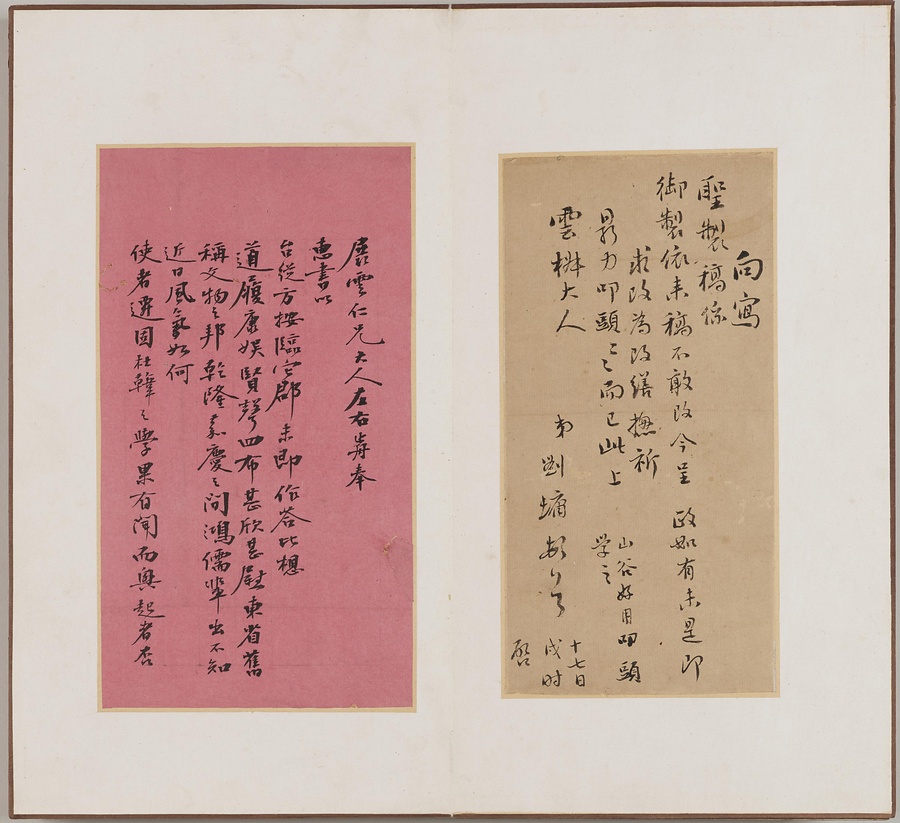 向寫
聖製稿係
御製依来稿不敢改今呈 政如有未是即
求改為改繕 祈
叩頭〻而已此上
雲椒大人
弟劉墉頓首
山谷好用叩頭
学之
十七日
戌时
啓
展雲仁兄大人左右歬奉
惠書以
台從方按臨它郡未即作答比想
道履康娛賢聲四布甚欣甚慰東省舊
稱文物之邦乾隆嘉慶之間鴻儒輩出不知
近日風氣如何
使者遷固杜韓之學果有聞而興起者否